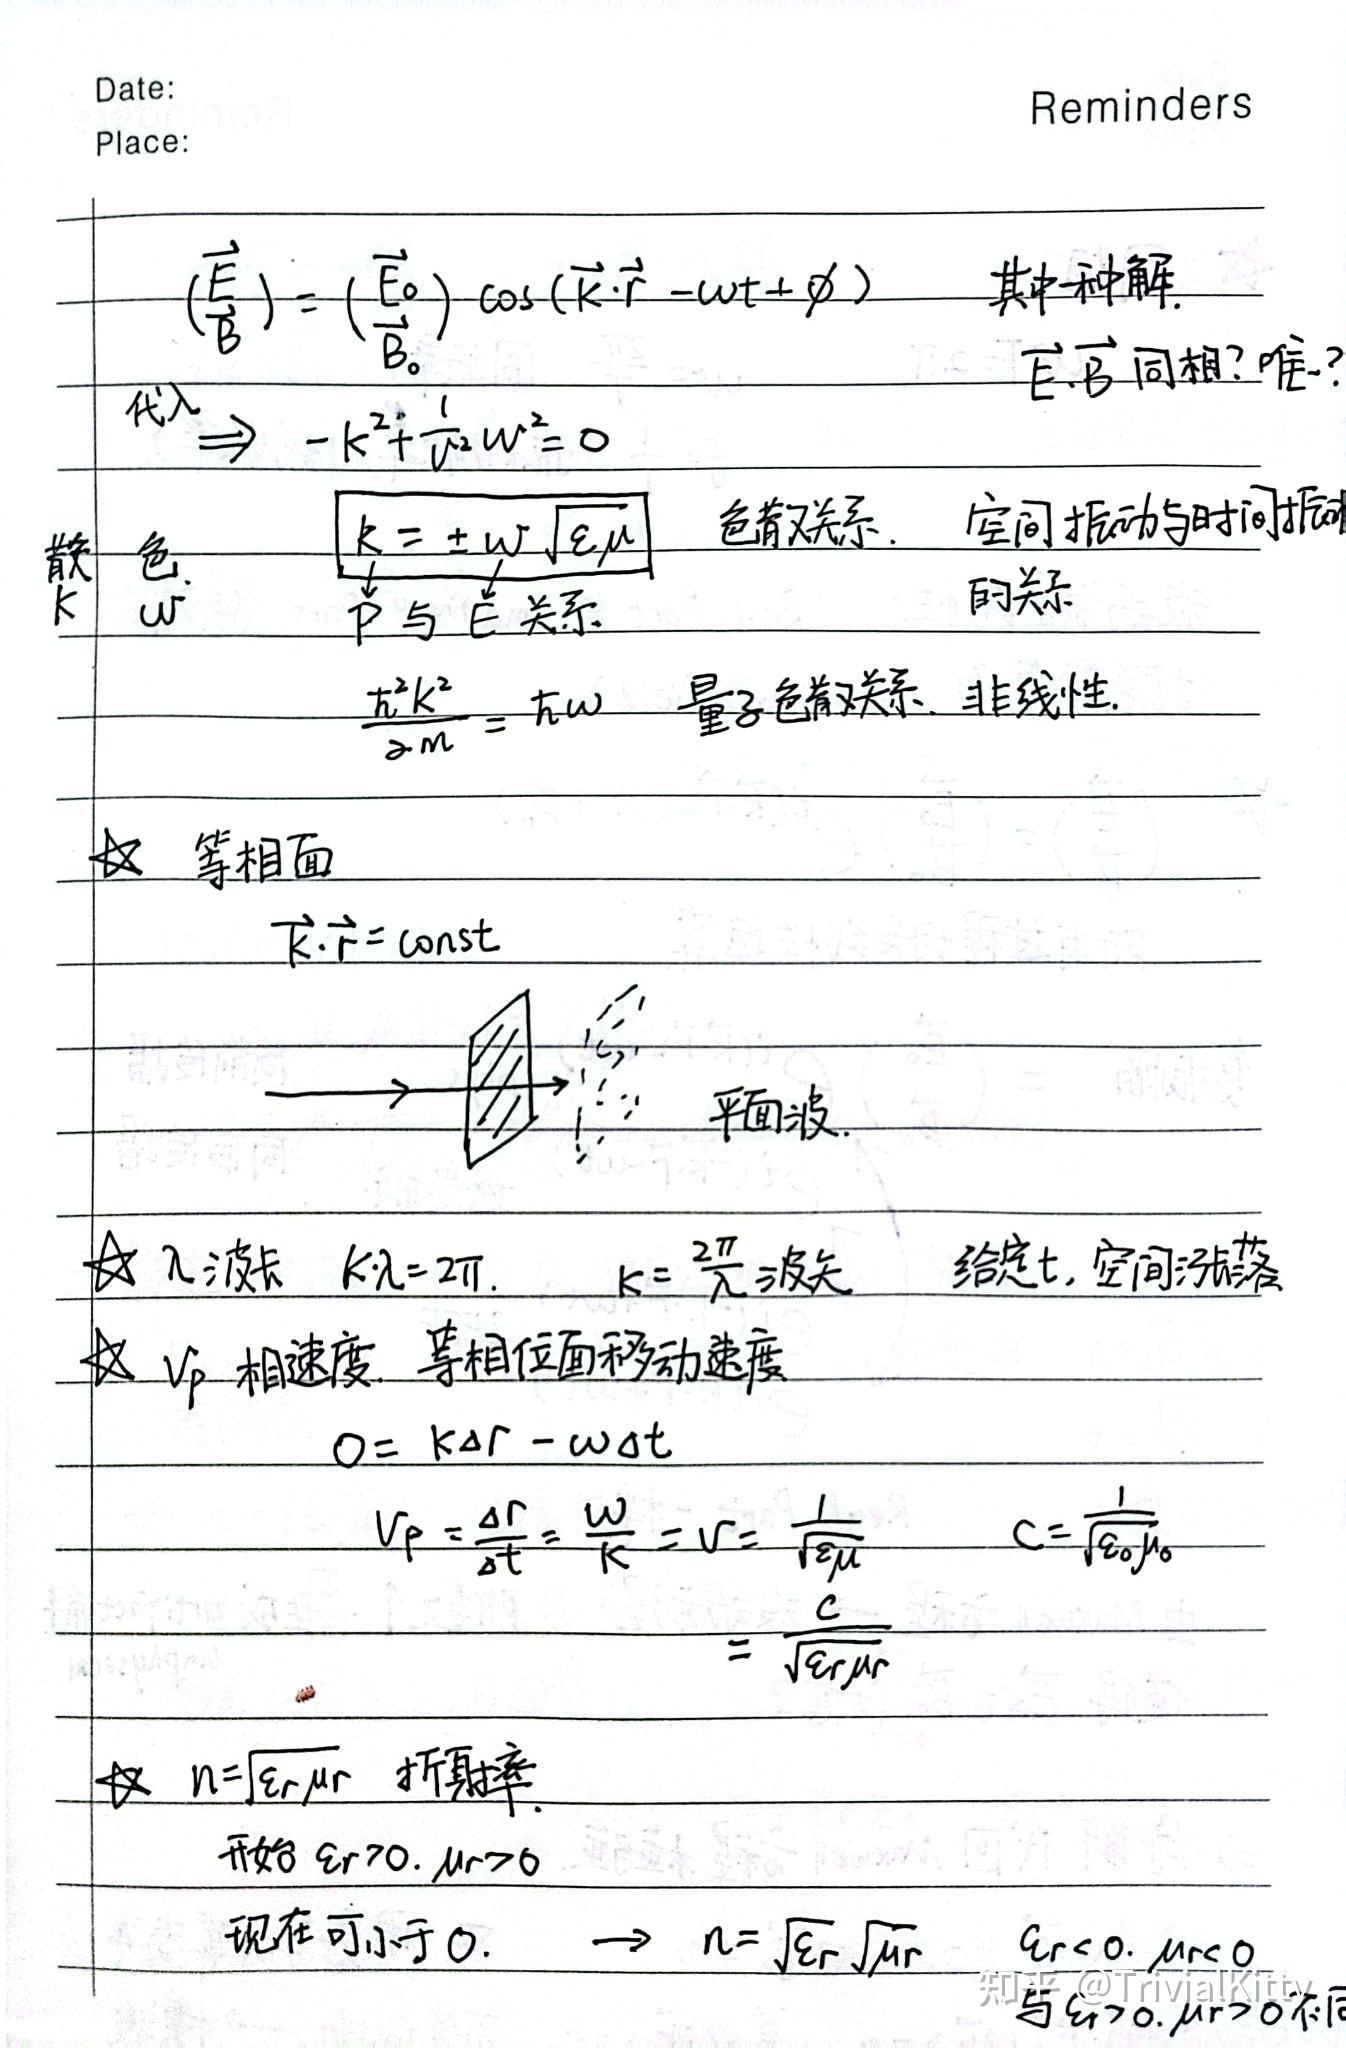 Date:
Place:
Reminders
(E⃗ / B⃗) = (E⃗₀ / B⃗₀) cos(k⃗·r⃗ - ωt + φ) 其中一种解.
E⃗.B⃗ 同相? 唯一?
代入 ⟹ -k² + 1/v² ω² = 0
k = ±ω√(εμ) 色散关系. 空间振动与时间振动
散 色.
的关系
k ω P 与 E 关系.
ħ²k²/2m = ħω 量子色散关系. 非线性.
☆ 等相面
k⃗·r⃗ = const
平面波.
☆ λ 波长 k·λ=2π. k = 2π/λ 波矢 给定t, 空间涨落
☆ Vp 相速度. 等相位面移动速度
0 = kΔr - ωΔt
Vp = Δr/Δt = ω/k = v = 1/√(εμ) C = 1/√(ε₀μ₀)
= c/√(εrμr)
☆ n=√(εrμr) 折射率.
开始 εr>0. μr>0
现在可小于0. → n=√εr √μr εr<0. μr<0
与 εr>0. μr>0 不同
知乎 @TrivialKitty